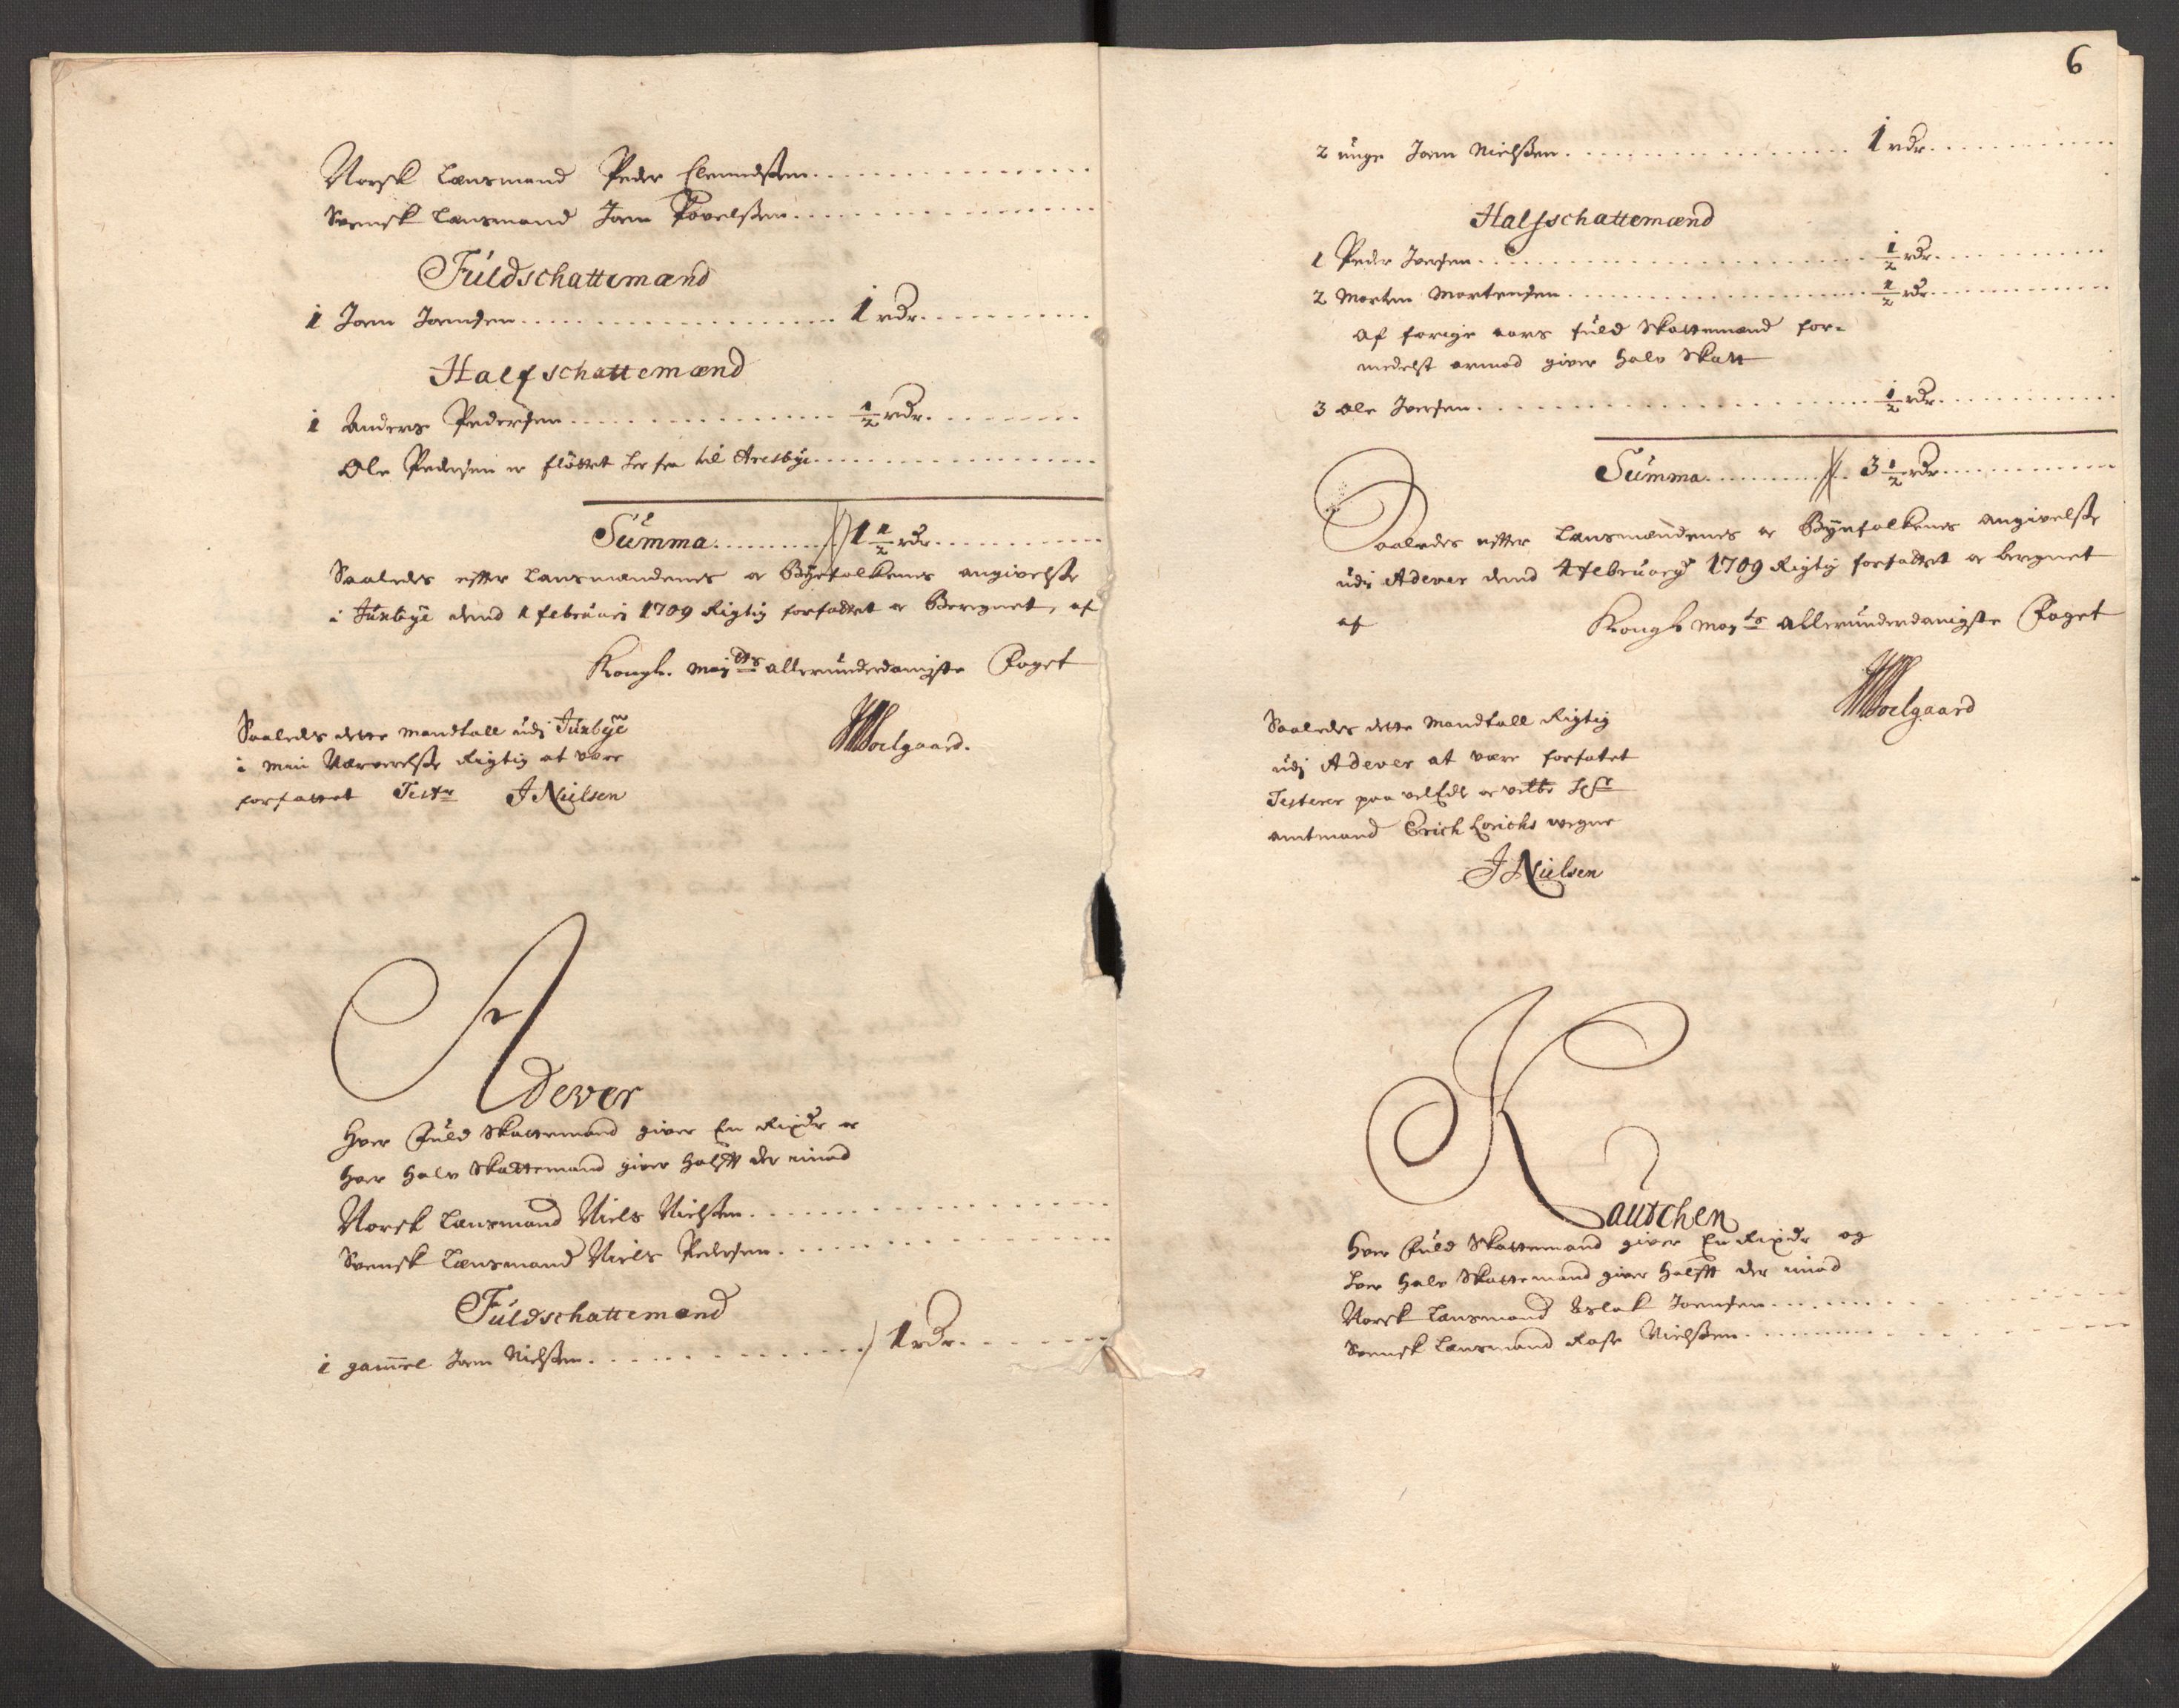 Norsk Lensmand Peder Clemmedssen
Svensk Lensmand Joen Povelssen
Fuldschattemænd
1 Joen Joensen 1 rdr
Halfschattemænd
1 Anders Pedersen ½ rdr
Ole Pedersen er fløttet her fra til Aresbye
Summa 1½ rdr
Saaledes efter Lansmændenes og Byefolkenes angivelsse
i Juxbye dend 1 februari 1709 Rigtig forfattet og Beregnet, af
Kongl. Maj:ts allerunderdanigste Foget
Saaledes dette Mandtall udj Juxbye
i min Nærverelsse Rigtig at være
forfattet Test: J Nielsen
Soelgaard.
Adever
Hver Fuld Skattemand giver En Rixdr og
hver halv Skattemand giver halfft der imod
Norsk Lensmand Niels Nielssen
Svensk Lensmand Niels Pedersen
Fuldschattemænd
1 gam̄el Joen Nielssen 1 rdr
6
2 unge Joen Nielssen 1 rdr
Halfschattemænd
1 Peder Joensen ½ rdr
2 Morten Mortensen ½ rdr
Af forige aars fuld Skattemænd for-
medelst armod giver halv Skatt
3 Ole Joensen ½ rdr
Summa 3½ rdr
Saaledes efter Lansmændenes og Byefolkenes angivelsse
udj Adever dend 4 februarij 1709 Rigtig forfattet og beregnet
af Kongl. May:ts allerunderdanigste Foget
Soelgaard
Saaledes dette Mandtall Rigtig
udj Adever at være forfatet
Testerer paa velEdle og velbr Hr
amtmand Erich Lorichs vegne
J Nielsen
Kautchen
Hver Fuld Skattemand giver En Rixdr og
hver halv Skattemand giver halfft der imod
Norsk Lensmand Aslak Joensen
Svensk Lensmand Rase Nielssen